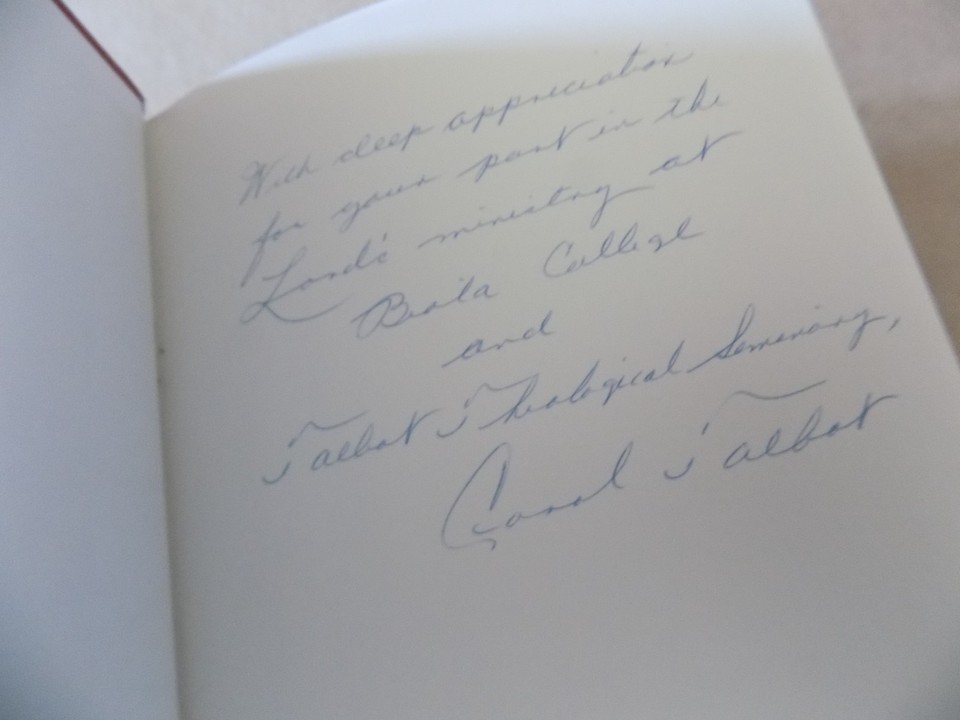 With deep appreciation
for your part in the
Lord's ministry at
Biola College
and
Talbot Theological Seminary,
Carol Talbot